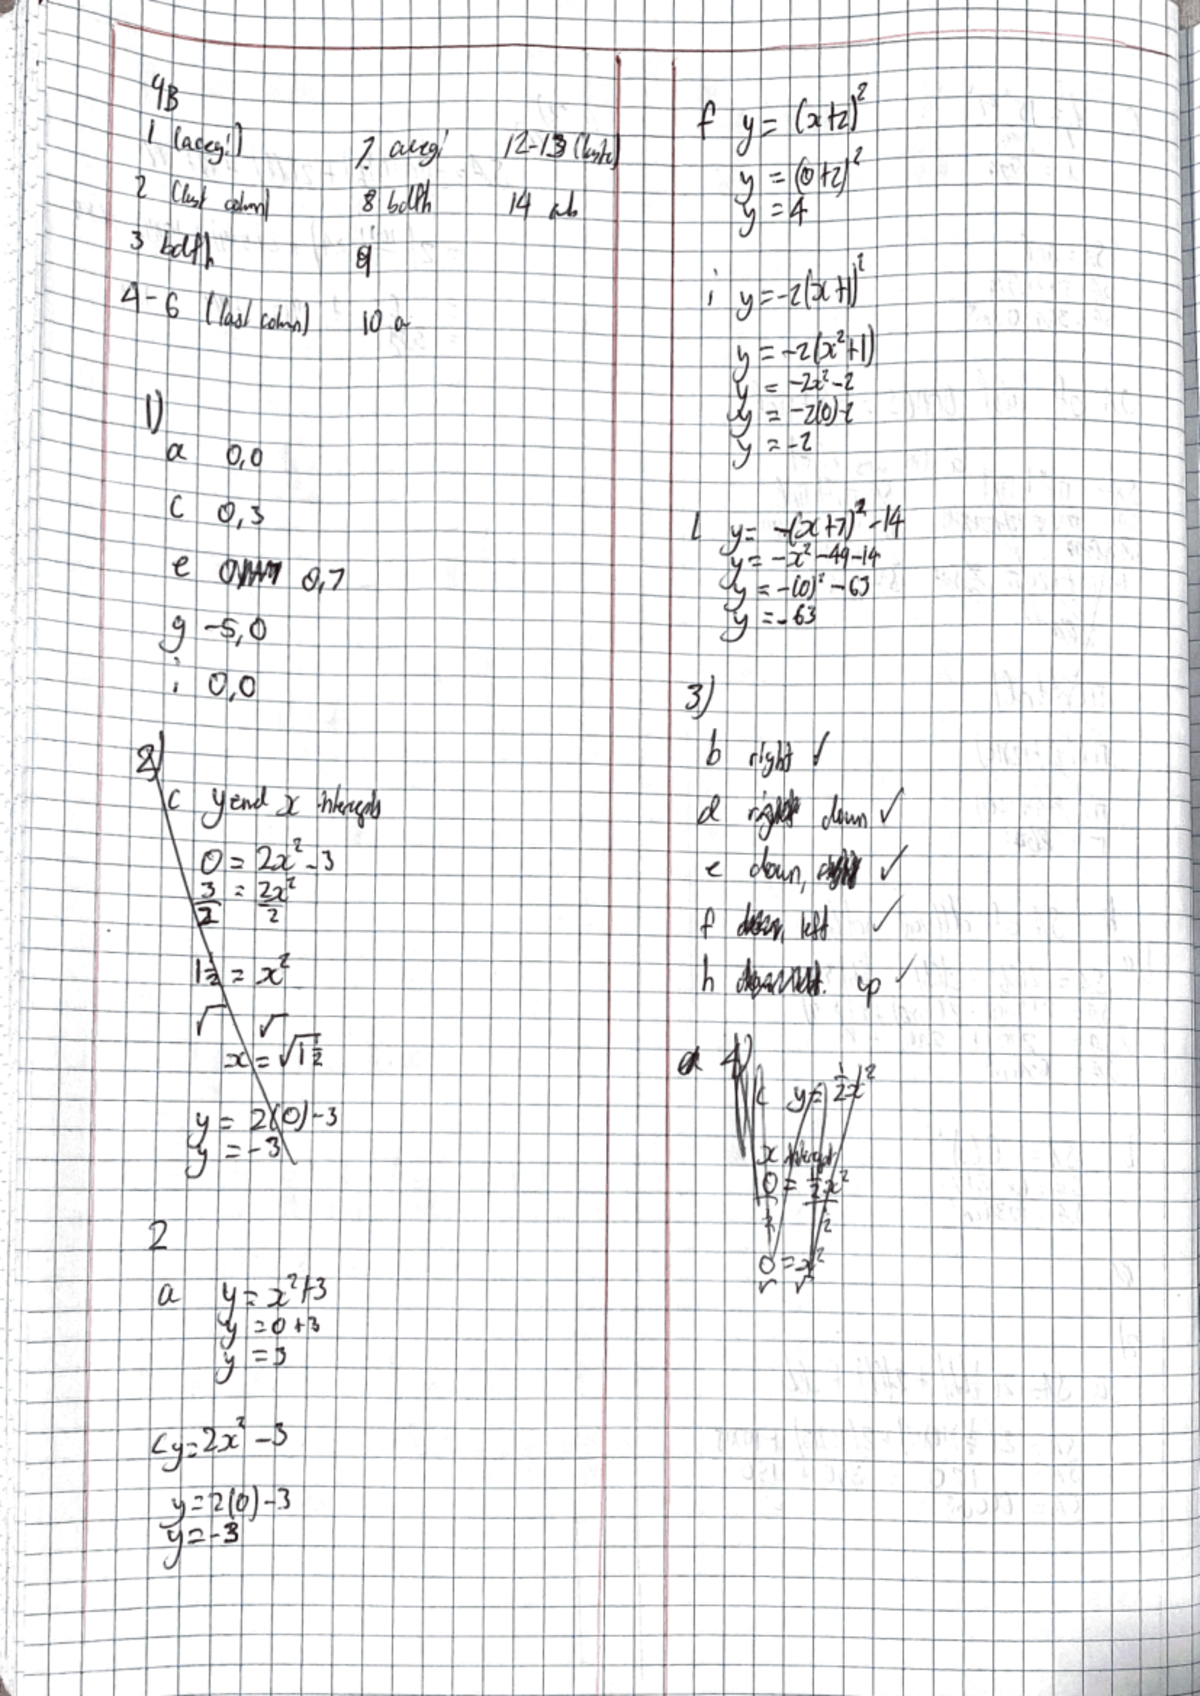 9B
1 (acegi)
2 (last column)
3 bdfh
4-6 (last column)
7 acegi
8 bdfh
9
10 a
12-13 (last)
14 ab
1)
a 0,0
c 0,3
e 0,7
g -5,0
i 0,0
2)
c y and x intercepts
0 = 2x² - 3
3/2 = 2x²/2
1½ = x²
√ √
x = √1½
y = 2(0)-3
y = -3
2
a y = x²+3
y = 0+3
y = 3
c y = 2x² - 3
y = 2(0)-3
y = -3
f y = (x+2)²
y = (0+2)²
y = 4
i y = -2(x+1)²
y = -2(x²+1)
y = -2x²-2
y = -2(0)-2
y = -2
l y = -(x+7)² -14
y = -x² -49-14
y = -(0)² -63
y = -63
3)
b right ✓
d down ✓
e down, ✓
f left ✓
h up ✓
4)
c y = ½x²
x intercept
0 = ½x²
0 = x²
√ √